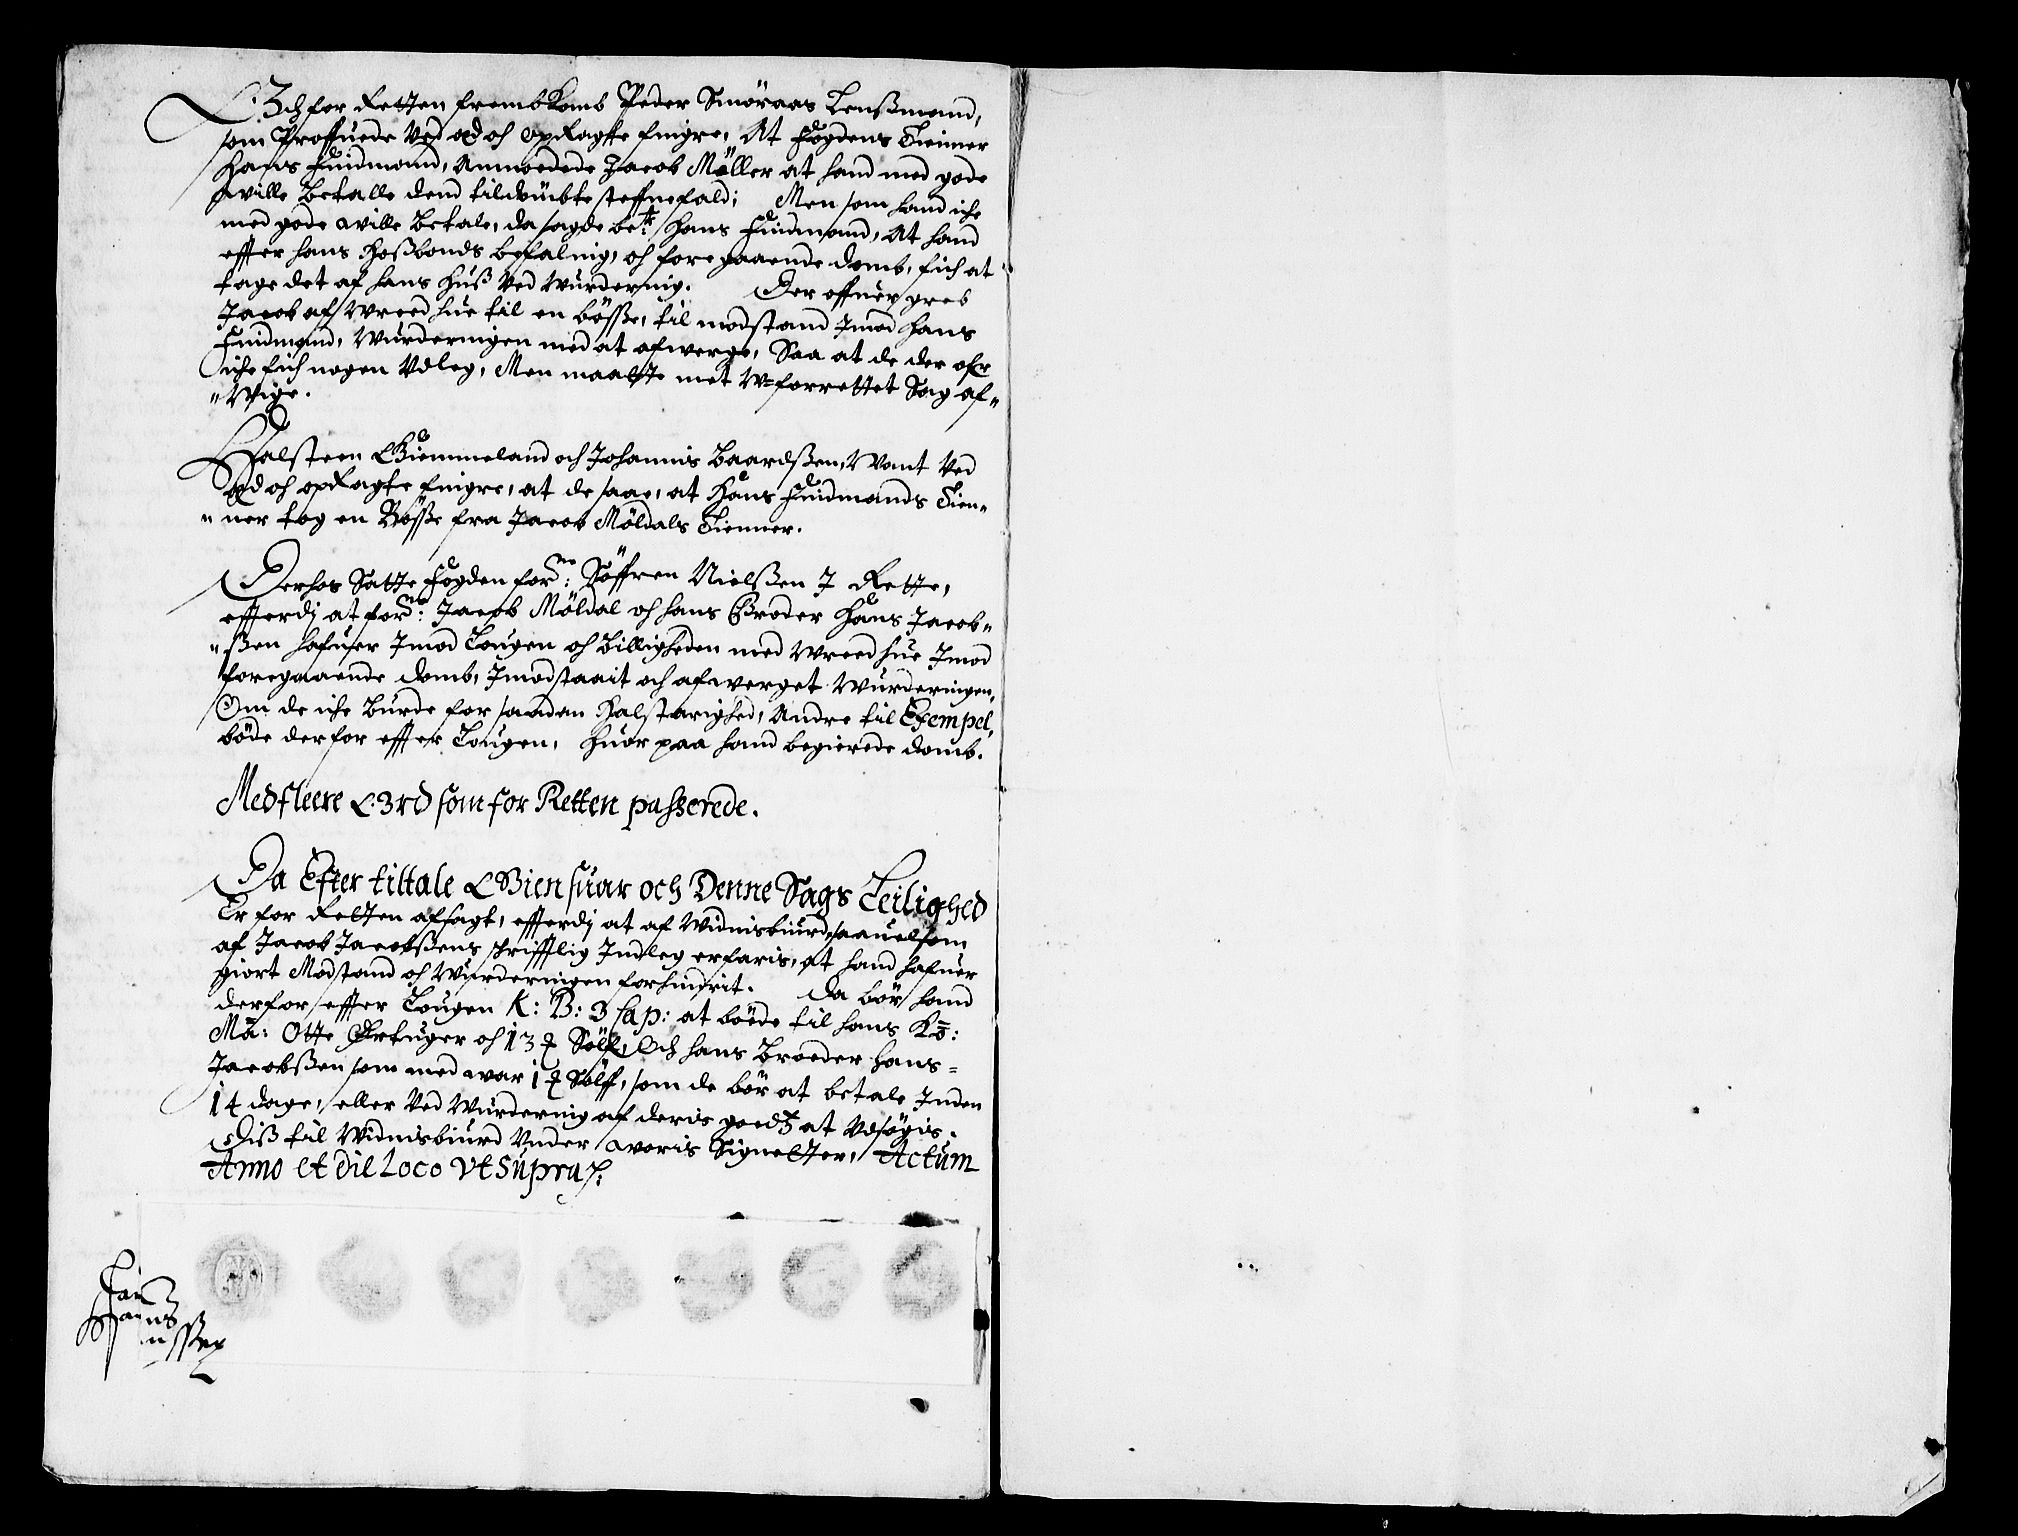 Och for Retten frembkomb Peder Smöraas Lenßmand,
som Proffuede Ved æd och opRagte finngre, At Fogdens Tienner
Hans Findmand, Anmoedede Jacob Möller at hand med gode
wille Betalle dend tildömbte steffnefald; Men som hand iche
med gode wille Betale, da sagde be:te Hans Findmand, At hand
effter hans Hoßbonds befaling, och foregaaende domb, fich at
tage det af hans Huß Ved Wurdering. Der offuer greb
Jacob af Wreed hue til en bösße, til modstand Jmod Hans
Findmand, Wurderingen med at afwerge, Saa at de der ofr
iche fich nogen Vdleg, Men maatte met W=forrettet Sag af„
„Wige.
Halsteen Giemmeland och Johannis Baardßen, Want Ved
æd och opRagte finngre, at de saae, at Hans Findmands Tien„
„ner tog en Bösße fra Jacob Möldals Tienner.
Derhos Satte Fogden for:ne Söffren Nielßen J Rette,
effterdj at for:ne Jacob Möldal och hans Broder Hans Jacob„
„ßen hafuer Jmod Lougen och Billigheden med Wreed hue Jmod
foregaaende domb, Jmodstaait och afwerget Wurderingen,
Om de iche Burde for saadan Halstarighed, Andre til Exempel,
böde derfor effter Lougen, Huor paa hand begierede domb.
Med fleere Ord som for Retten passerede.
Da Efter tiltale Giensuar och Denne Sags Leilighed
Er for Retten afsagt, effterdj at af Widnisbiurd, saauelsom
af Jacob Jacobßens skrifftlig Jndleg erfaris, at hand hafuer
giort Modstand och Wurderingen forhindrit. Da bör hand
derfor effter Lougen K: B: 3 Cap: at böede til hans Ko:
Ma: Otte Ørtuger och 13 ₰ Sölf, Och hans Broeder Hans=
Jacobßen som med war 1 ₰ Sölff, som de bör at betale Jnden
14 dage, eller Ved Wurdering af deris goedtz at Vdsögis.
Diß til Widnisbiurd Vnder woris Signetter, Actum
Anno et die Loco Vt Supra.
Hans